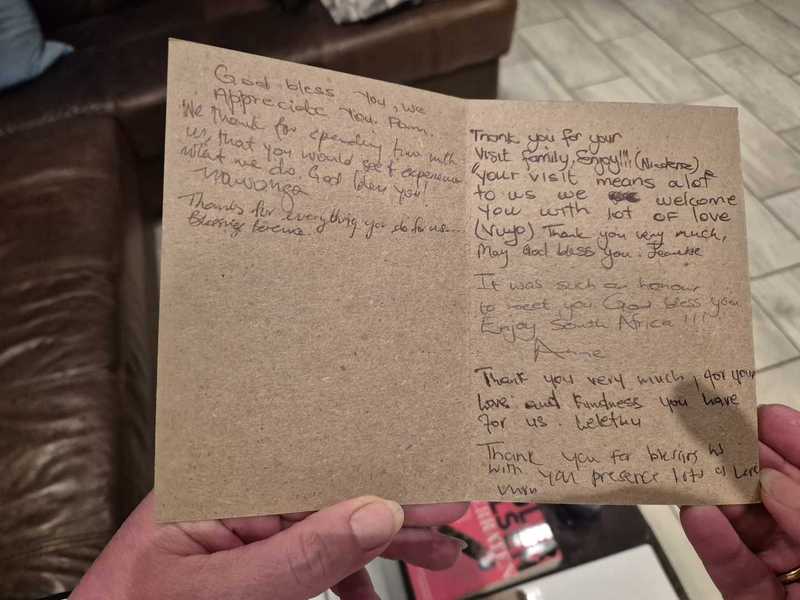 God bless you, we
Appreciate you. Fam.
We thank for spending time with
us, that you would see & experience
what we do. God bless you!
Thanks for everything you do for us...
Blessings
Thank you for your
visit family, Enjoy!!!
"Your visit means a lot
to us we welcome
you with lot of love
(Vuyo) Thank you very much,
May God bless you.
It was such an honour
to meet you God bless you
Enjoy South Africa!!!
Anne
Thank you very much, for your
love and kindness you have
for us. Lelethu
Thank you for blessing us
with you presence lots of love